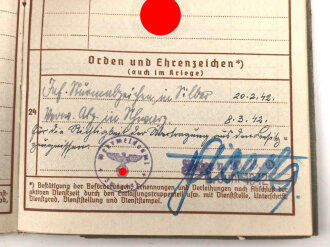 Orden und Ehrenzeichen*)
(auch im Kriege)
Inf. Sturmabzeichen in Silber 20.2.42.
Verw. Abz. in Schwarz 8.3.42.
24
für die Richtigkeit der Übertragung aus den Besitz-
zeugnissen:
Wehrmeldeamt
*) Bestätigung der Beförderungen, Ernennungen und Verleihungen nach Abschluß der
aktiven Dienstzeit durch den Entlassungstruppenteil usw. mit Unterschrift,
Dienstgrad, Dienststellung und Dienststempel.